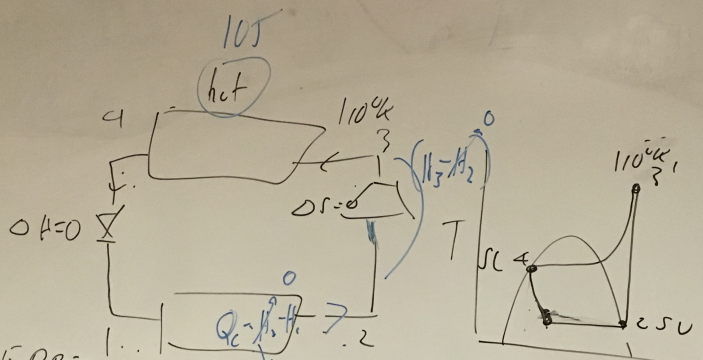 105
hot
4
110°K
3
(H₃-H₂)
0
ΔS=0
ΔH=0
0
Qc = H₂-H₁
1
2
T
110°K
3
SL 4
1
2 SV